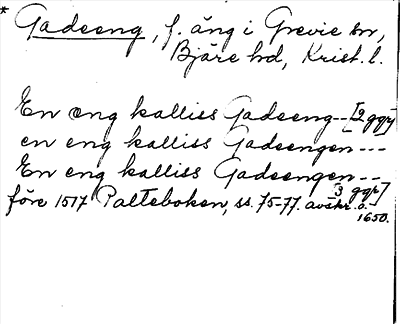 * Gadeeng, f. äng i Grevie sn,
Bjäre hd, Krist. l.
En eng kalliss Gadeeng--[2 ggr]
en eng kalliss Gadeengen---
En eng kalliss Gadeengen--
3 ggr]
före 1517 Palteboken, ss. 75-77. avskr. o.
1650.